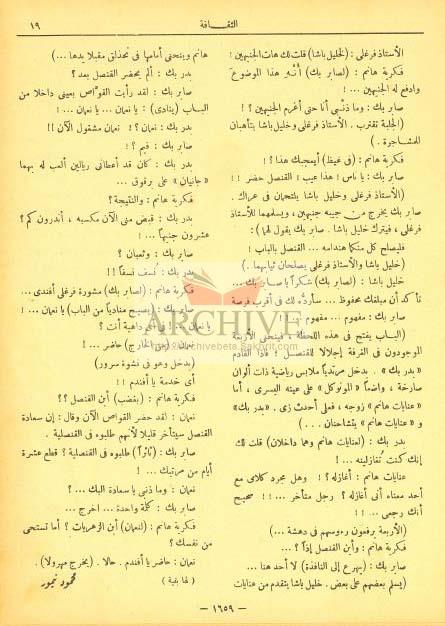 ١٩
الثقافة
الأستاذ فرغلى : (لخليل باشا) قلت لك هات الجنيهين !
فكرية هانم : (لصابر بك) أنْهِ هذا الموضوع
وادفع له الجنيهين ...
صابر بك : وما ذنبى أنا حتى أغرم الجنيهين ؟ !
(الجلبة تقترب . الأستاذ فرغلى وخليل باشا يتأهبان
للمشاجرة .)
فكرية هانم : (فى غيظ) أيعجبك هذا ؟ !
صابر بك : يا ناس ! هذا عيب ! القنصل حضر !!
(الأستاذ فرغلى وخليل باشا يلتحمان فى عراك .
صابر بك يخرج من جيبه جنيهين ، ويسلمهما للأستاذ
فرغلى ، فيترك خليل باشا . صابر بك يقول لهما) :
فليصلح كل منكما هندامه ... القنصل بالباب !
(خليل باشا والأستاذ فرغلى يصلحان ثيابهما .)
خليل باشا : (لصابر بك) شكراً يا صابر بك ...
تأكد أن مبلغك محفوظ ... سأرده لك فى أقرب فرصة
صابر بك : مفهوم ... مفهوم ... !
(الباب يفتح فى هذه اللحظة ، فينحنى الأربعة
الموجودون فى الغرفة إجلالا للقنصل ! فإذا القادم
« بدر بك » . يدخل مرتدياً ملابس رياضية ذات ألوان
صارخة ، واضعاً « المونوكل » على عينه اليسرى ، أما
« عنايات هانم » زوجه ، فعلى أحدث زى . « بدر بك »
و « عنايات هانم » يتشاحنان . . .)
بدر بك : (لعنايات هانم وهما داخلان) قلت لك
إنك كنت تغازلينه ... !
عنايات هانم : أغازله ؟ ! وهل مجرد كلامى مع
أحد معناه أنى أغازله ؟ رجل متأخر ... !! صحيح
أنك رجعى ... !!
(الأربعة يرفعون رءوسهم فى دهشة ...)
فكرية هانم : وأين القنصل إذاً ؟ ...
صابر بك : (يهرع إلى النافذة) لا أحد هنا ...
(يسلم بعضهم على بعض . خليل باشا يتقدم من عنايات
هانم وينحنى أمامها فى تحذلق مقبلا يدها ...)
بدر بك : ألم يحضر القنصل بعد ؟
صابر بك : لقد رأيت القوّاص بعينى داخلا من
الباب (ينادى) : يا نعمان ... يا نعمان ... !
بدر بك : نعمان ؟ ! نعمان مشغول الآن !!
صابر بك : فيم ؟ !
بدر بك : كان قد أعطانى ريالين ألعب له بهما
« جانيان » على برقوق ...
فكرية هانم : والنتيجة ؟
بدر بك : قبض منى الآن مكسبه ، أتدرون كم ؟
عشرون جنيهاً ... !
صابر بك : وثعبان ؟
بدر بك : نُسف نسفاً !!
فكرية هانم : (لصابر بك) مشورة فرغلى أفندى ...
صابر بك : (يصيح منادياً من الباب) يا نعمان ...
يا نعمان ... ! أى داهية أنت ؟
نعمان : (من الخارج) حاضر ... !
(يدخل وهو فى نشوة سرور)
أى خدمة يا أفندم !!
فكرية هانم : (بغضب) أين القنصل ؟ ؟
نعمان : لقد حضر القواص الآن وقال : إن سعادة
القنصل سيتأخر قليلا لأنهم طلبوه فى القنصلية .
صابر بك : (ثائراً) طلبوه فى القنصلية ؟ قطع عشرة
أيام من مرتبك ... !
نعمان : وما ذنبى يا سعادة البك ... ؟
صابر بك : كلمة واحدة ... اخرج ...
فكرية هانم : (لنعمان) أين الزهريات ؟ أما تستحى
من نفسك ؟
نعمان : حاضر يا أفندم . حالا . (يخرج مهرولا) .
(لها بقية)
محمود تيمور
ARCHIVE
http://Archivebeta.Sakhrit.com
— ١٦٥٩ —